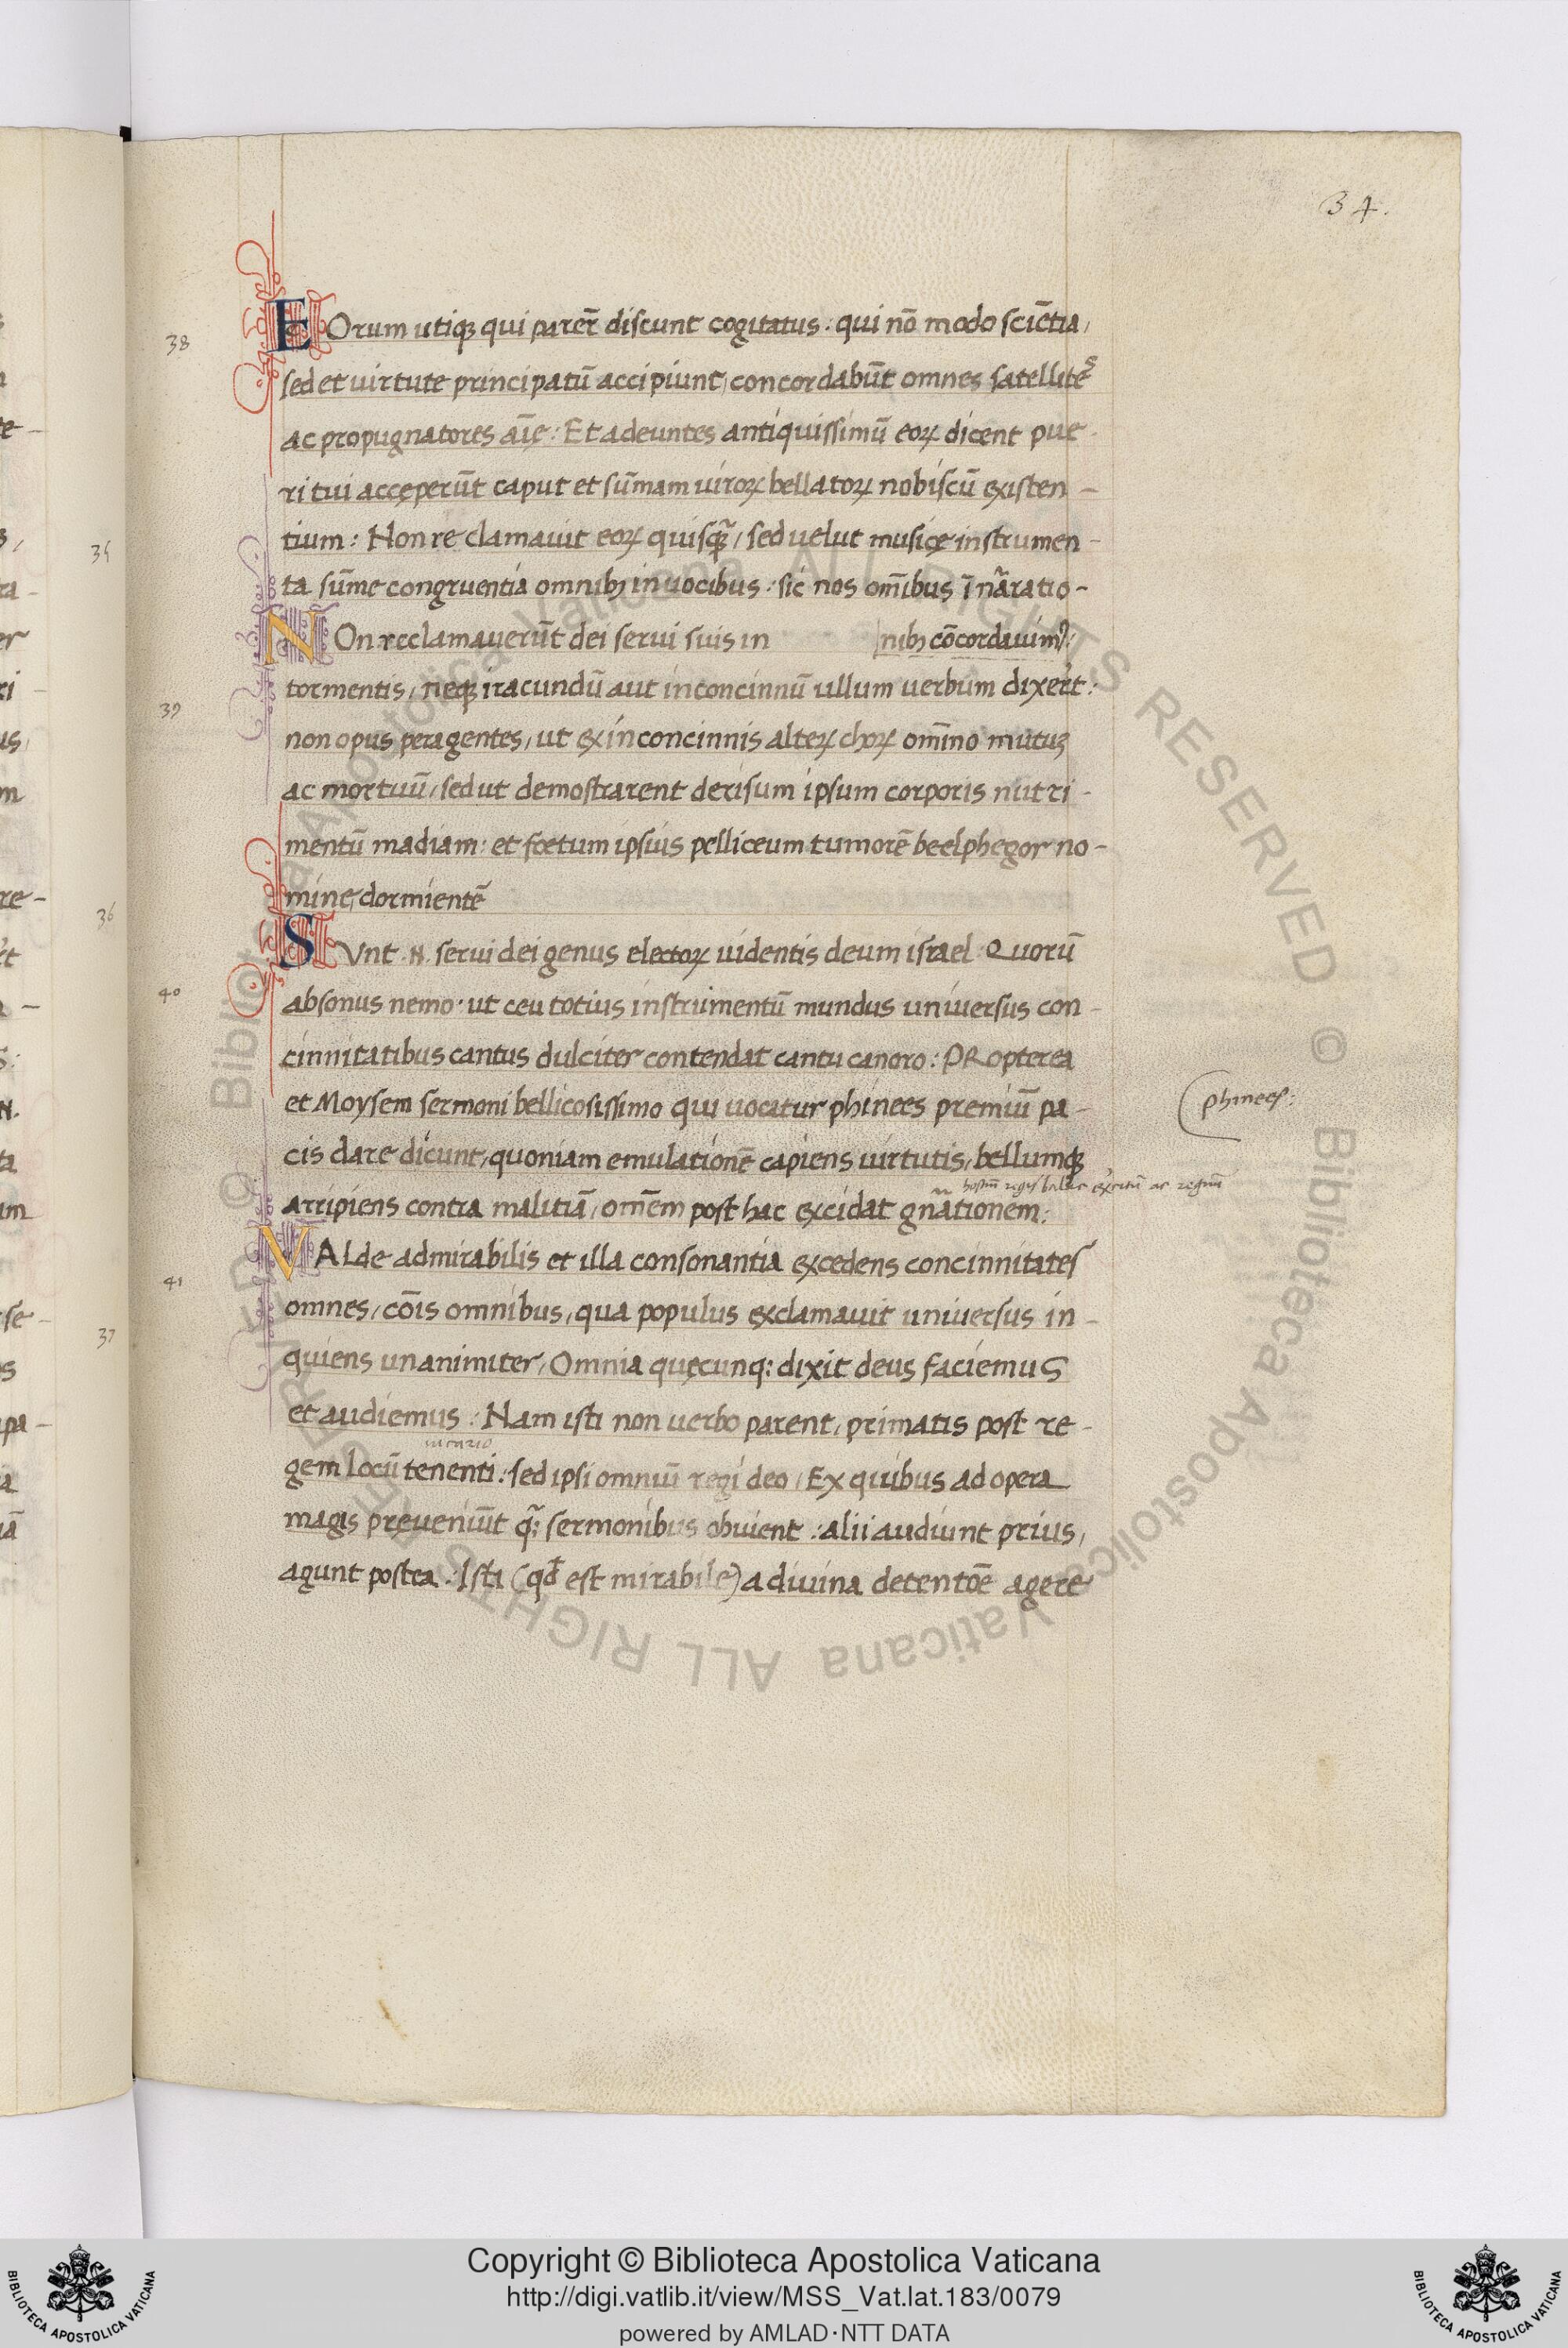 34.
38
EOrum utiqꝫ qui parer̃ discunt cogitatus : qui nõ modo sciẽtia,
sed et uirtute principatũ accipiunt, concordabũt omnes satellites
ac propugnatores aĩę : Et adeuntes antiquissimũ eoꝝ dicent pue-
ri tui accęperũt caput et sũmam uiroꝝ bellatoꝝ nobiscũ existen-
tium : Non reclamauit eoꝝ quisqꝫ̃, sed uelut musicę instrumen-
ta sũme congruentia omnibꝫ in uocibus : sic nos om̃ibus ĩ nãratio-
nibꝫ cõcordauimꝰ:
39
NOn reclamauerũt dei serui suis in
tormentis, neqꝫ iracundũ aut inconcinnũ ullum uerbum dixer̃t :
non opus peragentes, ut ex inconcinnis alteꝝ choꝝ om̃ino mutuꝫ
ac mortuũ, sed ut demostrarent derisum ipsum corporis nutri-
mentũ madiam : et foetum ipsius pelliceum tumorẽ beelphegor no-
mine, dormientẽ
40
SVnt .N. serui dei genus electoꝝ uidentis deum israel Quorũ
absonus nemo · ut ceu totius instrumentũ mundus uniuersus con-
cinnitatibus cantus dulciter contendat cantu canoro : PRopterea
et Moysem sermoni bellicosissimo qui uocatur phinees premiũ pa-
cis dare dicunt, quoniam emulationẽ capiens uirtutis, bellumqꝫ
arripiens contra malitiã, om̃em post hac excidat gnãtionem :
phinees:
41
VALde admirabilis et illa consonantia excedens concinnitates
omnes, cõis omnibus, qua populus exclamauit uniuersus in-
quiens unanimiter, Omnia quęcunq: dixit deus faciemus
et audiemus : Nam isti non uerbo parent, primatis post re-
gem locũ tenenti : sed ipsi omniũ regi deo, Ex quibus ad opera
magis pręueniũt q̃: sermonibus obuient : alii audiunt prius,
agunt postea . Isti (qđ est mirabile) a diuina detentõe agere
35
36
37
Copyright © Biblioteca Apostolica Vaticana
http://digi.vatlib.it/view/MSS_Vat.lat.183/0079
powered by AMLAD·NTT DATA
BIBLIOTECA APOSTOLICA VATICANA
BIBLIOTECA APOSTOLICA VATICANA
© Biblioteca Apostolica Vaticana ALL RIGHTS RESERVED © Biblioteca Apostolica Vaticana ALL RIGHTS RESERVED